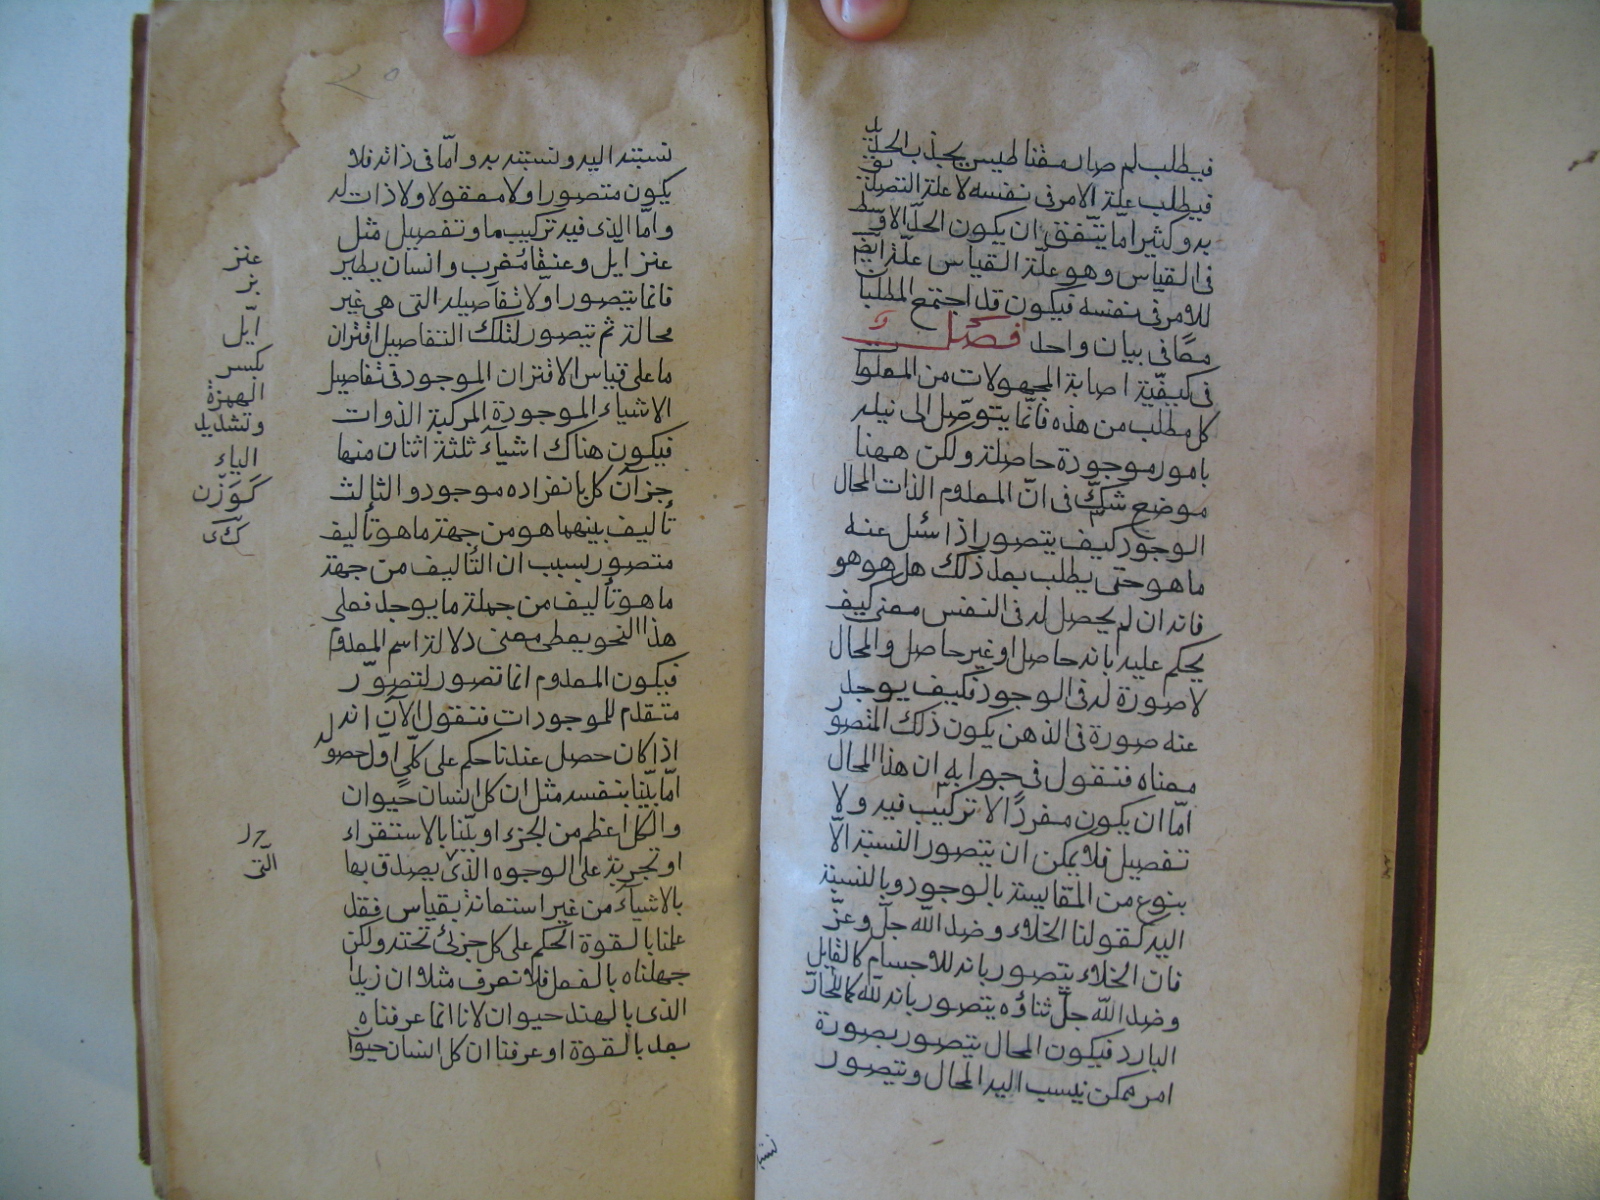 فيطلب لم صار مغناطيس يجذب الحديد
فيطلب علة الامر فى نفسه لا علة التصديق
به وكثيرا ما يتفق ان يكون الحد الاوسط
فى القياس وهو علة القياس علة ايضا
للامر فى نفسه فيكون قد اجتمع المطلبان
معًا فى بيان واحد فصل
فى كيفية اصابة المجهولات من المعلومات
كل مطلب من هذه فانما يتوصل الى نيله
بامور موجودة حاصلة ولكن ههنا
موضع شكّ فى انّ المعدوم الذات المحال
الوجود كيف يتصور اذا سئل عنه
ما هو حتى يطلب بعد ذلك هل هو هو
فانه ان لم يحصل له فى النفس معنى كيف
يحكم عليه بانه حاصل او غير حاصل والمحال
لا صورة له فى الوجود فكيف يوجد
عنه صورة فى الذهن يكون ذلك المتصور
معناه فنقول فى جوابه ان هذا المحال
امّا ان يكون مفردًا لا تركيب فيه ولا
تفصيل فلا يمكن ان يتصور البتة الّا
بنوع من المقايسة بالوجود وبالنسبة
اليه كقولنا الخلاء وضد الله جلّ وعزّ
فان الخلاء يتصور بانه للاجسام كالقابل
وضد الله جلّ ثناؤه يتصور بانه لله كما للحارّ
البارد فيكون المحال يتصور بصورة
امر ممكن ينسب اليه المحال ويتصور
نسبة
٢٥
نسبته اليه وتشبه به وامّا فى ذاته فلا
يكون متصورا ولا معقولا ولا ذات له
وامّا الذى فيه تركيب ما وتفصيل مثل
عنز ايّل وعنقا مغرب وانسان يطير
فانما يتصور اولا تفاصيله التى هى غير
محالة ثم تتصور لتلك التفاصيل اقتران
ما على قياس الاقتران الموجود فى تفاصيل
الاشياء الموجودة المركبة الذوات
فيكون هناك اشيآء ثلثة اثنان منها
جزآن كل بانفراده موجود والثالث
تأليف بينهما هو من جهة ما هو تأليف
متصور بسبب ان التأليف من جهة
ما هو تأليف من جملة ما يوجد فعلى
هذا النحو يعطى معنى دلالة اسم المعدوم
فيكون المعدوم انما تصور لتصوّر
متقدم للموجودات فنقول الآن انه
اذا كان حصل عندنا حكم على كلّى اول حصوله
امّا بيّنا بنفسه مثل ان كل انسان حيوان
والكل اعظم من الجزء او بيّنا بالاستقراء
او تجربة على الوجوه الذى يصدق بها
بالاشيآء من غير استعانة بقياس فقد
علمنا بالقوة الحكم على كل جزئى تحته ولكن
جهلناه بالفعل فلا نعرف مثلا ان زيدا
الذى بالهند حيوان لانا انما عرفناه
بعد بالقوة او عرفنا ان كل انسان حيوان
عنز
بز
ايّل
بكسر
الهمزة
وتشديد
الياء
كوزن
التى